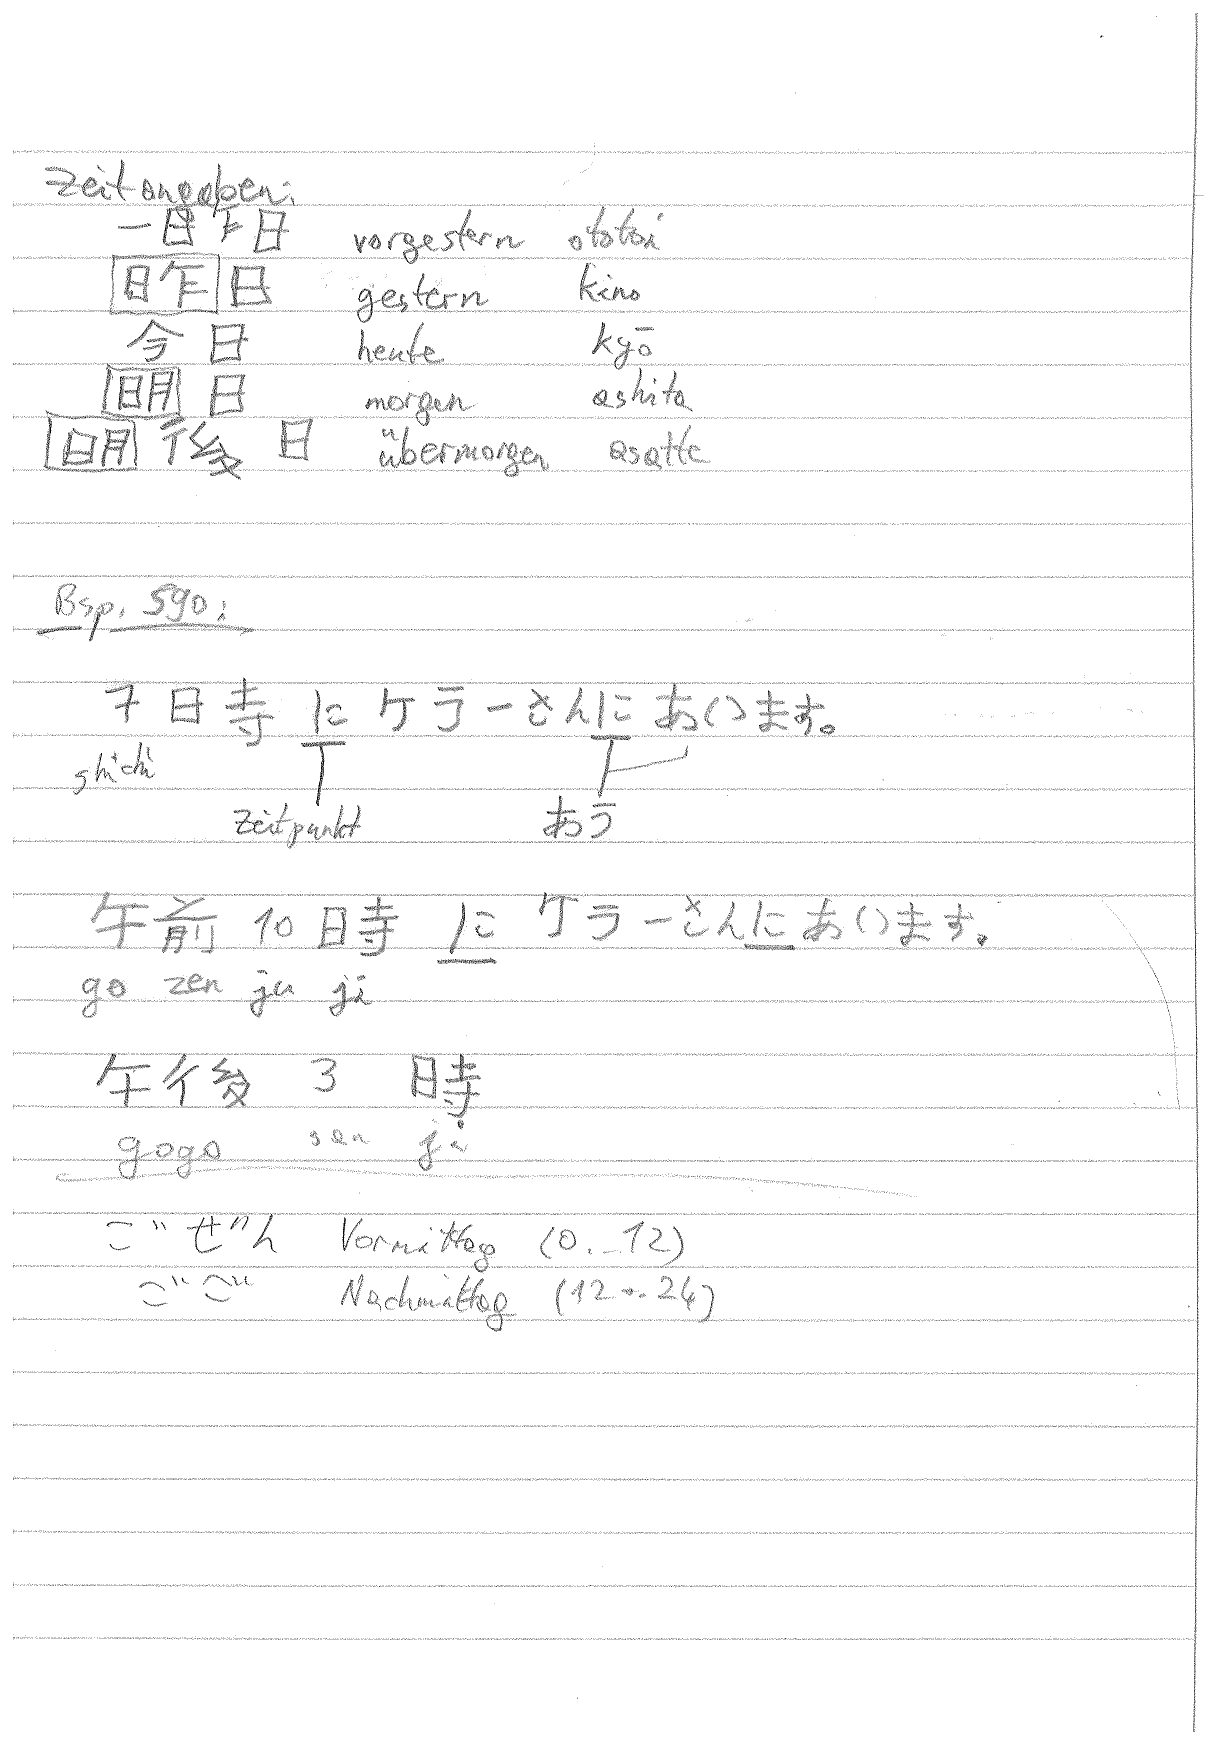 Zeitangaben:
一昨日 vorgestern ototoi
昨日 gestern kino
今日 heute kyō
明日 morgen ashita
明後日 übermorgen asatte
Bsp. S90:
7時にケラーさんにあいます。
shichi
Zeitpunkt あう
午前10時にケラーさんにあいます。
go zen ju ji
午後 3 時
gogo san ji
ごぜん Vormittag (0...12)
ごご Nachmittag (12...24)